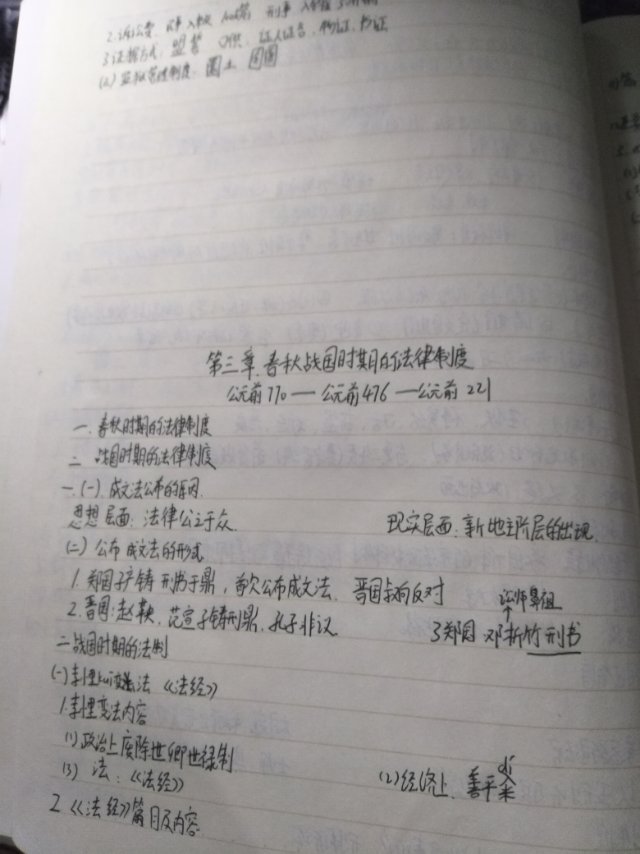 3 证据方式：盟誓 口供，证人证言，物证，书证
(2) 监狱管理制度：圜土 囹圄
第三章 春秋战国时期的法律制度
公元前770 — 公元前476 — 公元前221
一. 春秋时期的法律制度
二. 战国时期的法律制度
一.(一) 成文法公布的原因
思想层面：法律公之于众 现实层面：新地主阶层的出现
(二) 公布成文法的形式
1. 郑国子产铸刑书于鼎，首次公布成文法. 晋国叔向反对
2. 晋国：赵鞅，范宣子铸刑鼎，孔子非议 讼师鼻祖
3 郑国 邓析竹刑书
二 战国时期的法制
(一) 李悝变法《法经》
1. 李悝变法内容
(1) 政治上废除世卿世禄制 (2) 经济上，善平籴 dí
(3) 法：《法经》
2 《法经》篇目及内容